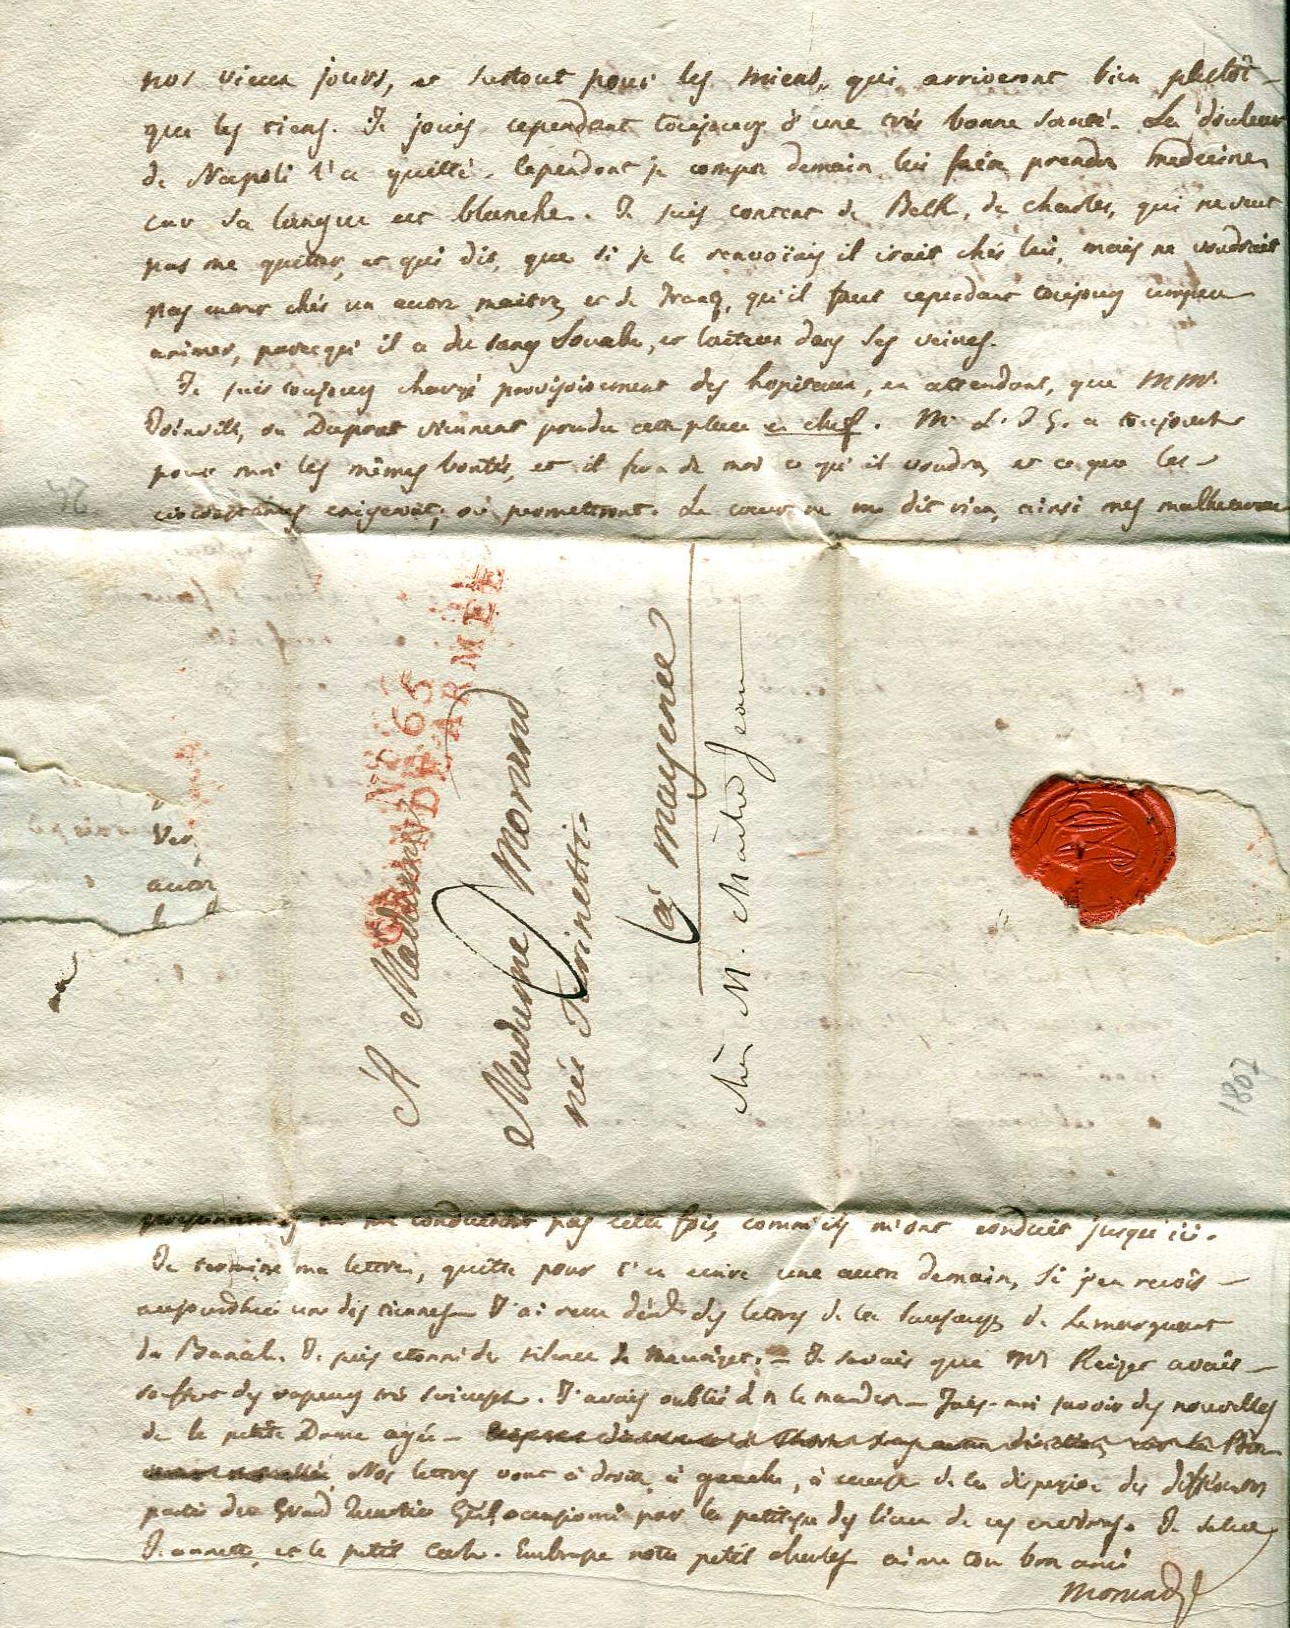 nos vieux jours, et surtout pour les miens, qui arriveront bien plustôt
que les tiens. Je jouis cependant toujours d'une très bonne santé. La douleur
de Napoli l'a quitté. Cependant je compte demain lui faire prendre medecine
car sa langue est blanche. Je suis content de Belk, de charles, qui ne veut
pas me quitter, et qui dit, que si je le renvoïais il irait chés lui, mais ne voudrait
pas entrer chés un autre maitre, et de qu'il faut cependant toujours un peu
animer, parcequ'il a du sang Souabe, et laiteux dans ses veines.
Je suis toujours chargé provisoirement des hopitaux, en attendant, que MMrs
Joinville, ou Duprat viennent prendre cette place en chef. Mr. L. I. G. a toujours
pour moi les mêmes bontés, et il fera de moi ce qu'il voudra, et ce que les
circonstances exigeront, où permettront. Le coeur ne me dit rien, ainsi mes malheureux
No. 63
GRANDE ARMÉE
A Madame
Madame Morand
née Terinetti.
à mayence
chés M. Maitre Jean
6
Ver
autr
1807
ne me conduiront pas cette fois, comme ils m'ont conduit jusqu'ici.
Je termine ma lettre, quitte pour t'en ecrire une autre demain, si j'en reçois
aujourdhui une des tiennes. J'ai reçu des lettres de la de Lamarque et
du Je suis etonné du silence de - Je savais que Mr Reizet avait
souffert des vapeurs J'avais oublié de te le mander. Fais-moi savoir des nouvelles
de la petite Dame agée -
Nos lettres vont à droite, à gauche, à cause de la dispersion des differentes
parties du Grand Quartier Gral, occasionné par la petitesse des lieux de ces environs. Je salue
Jeannette, et le petit Embrasse notre petit charles aime ton bon ami
Morand